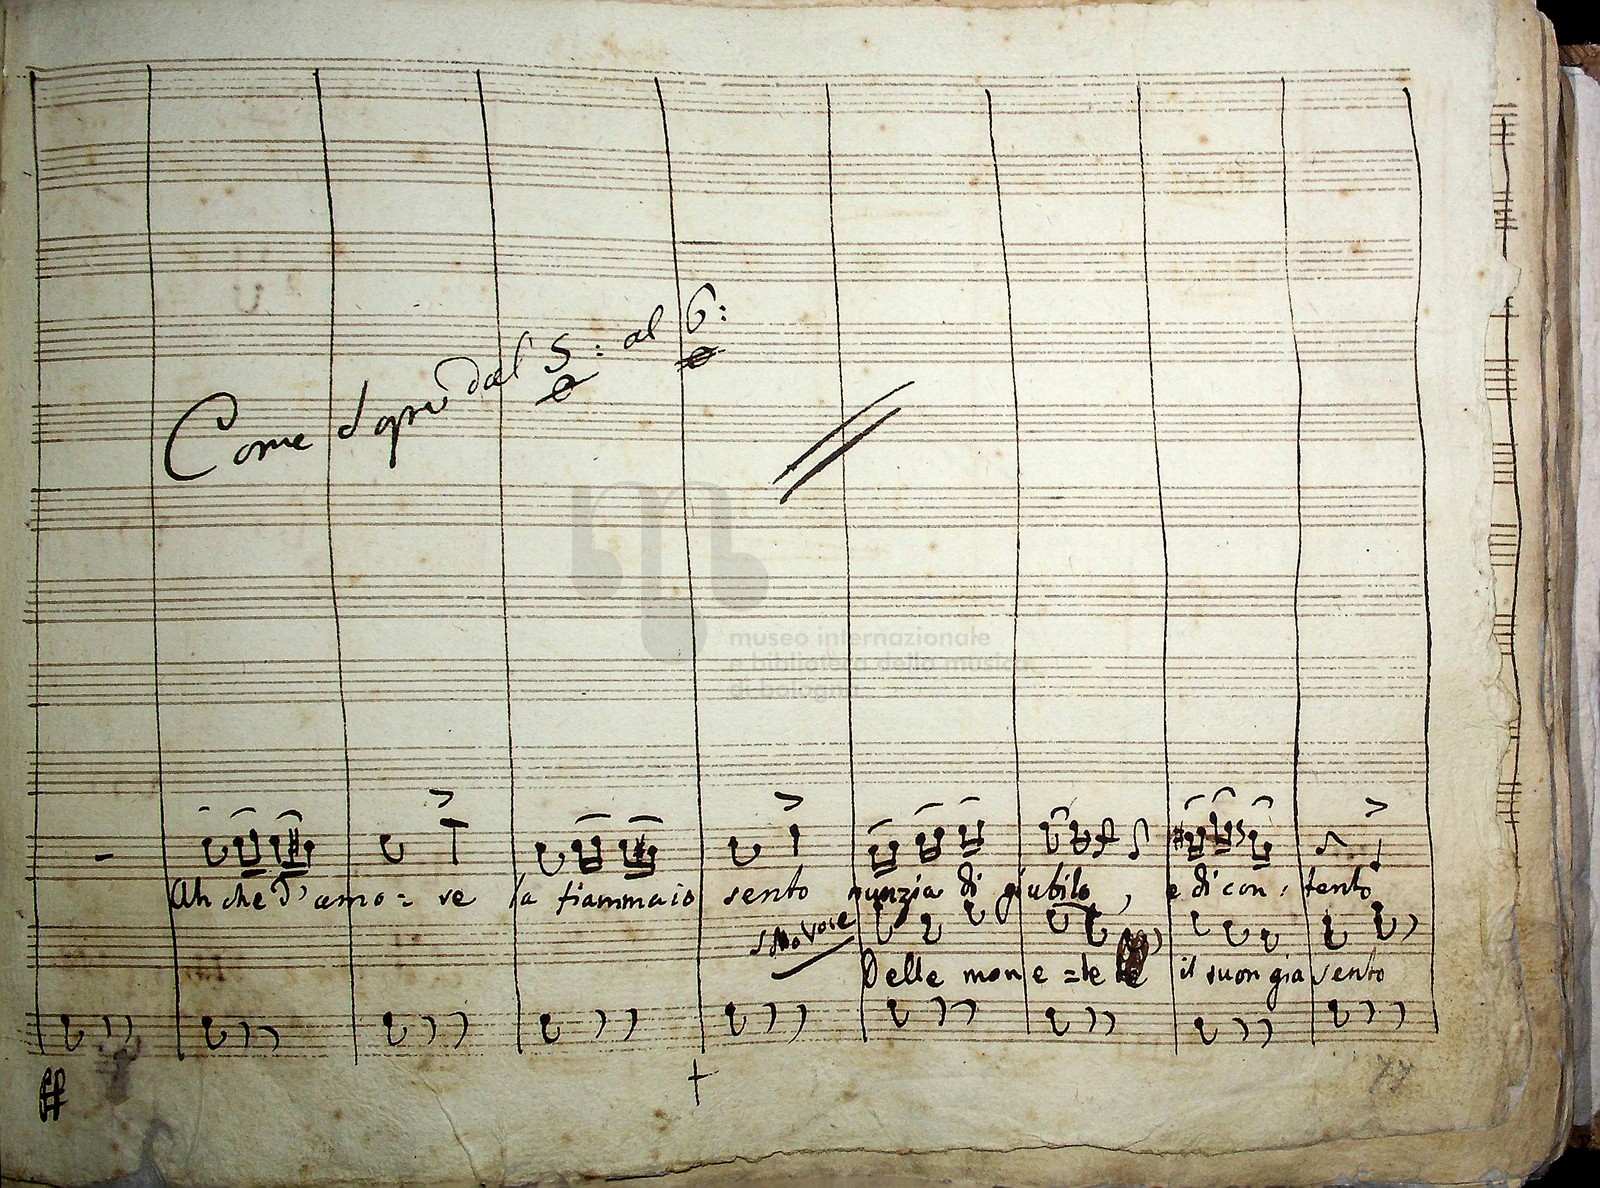 Come Sopra dal 5: al 6:
museo internazionale
e biblioteca della musica
di bologna
Ah che d'amo = re la fiamma io sento nunzia di giubilo, e di con = tento
sotto voce
Delle mone = te il suon gia sento
ff
77